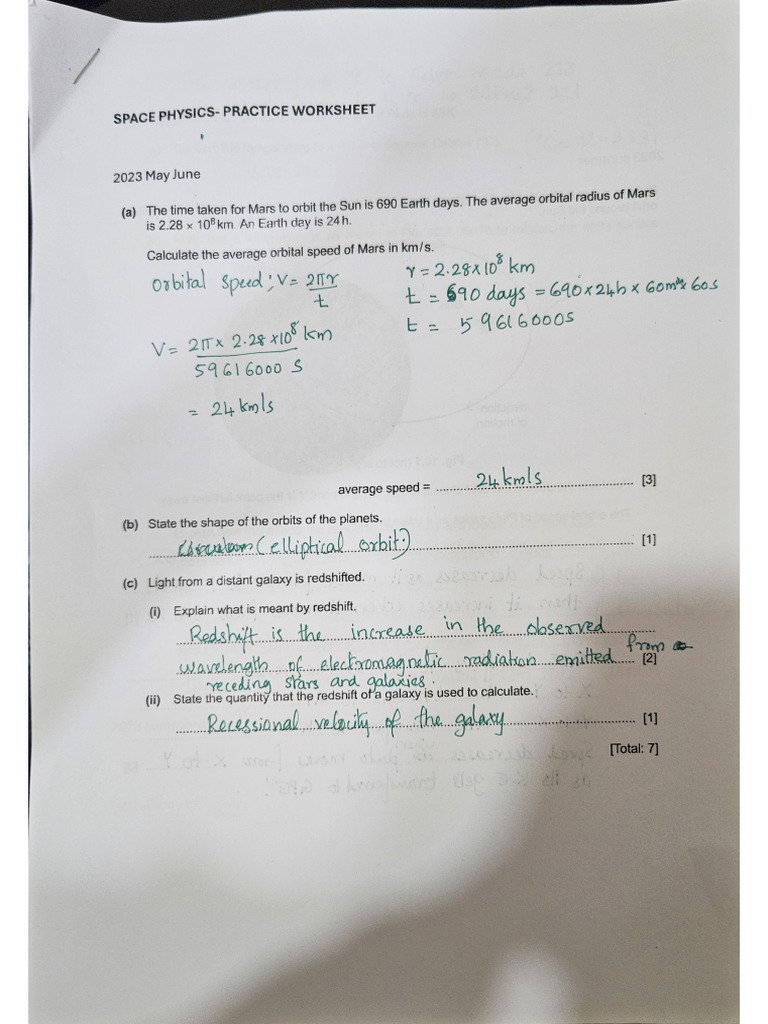 SPACE PHYSICS- PRACTICE WORKSHEET
2023 May June
(a) The time taken for Mars to orbit the Sun is 690 Earth days. The average orbital radius of Mars
is 2.28 × 10⁸ km. An Earth day is 24 h.
Calculate the average orbital speed of Mars in km/s.
Orbital speed; V = 2πr/t
r = 2.28×10⁸ km
t = 690 days = 690×24h × 60m × 60s
t = 59616000s
V = 2π× 2.28 ×10⁸ km / 59616000 S
= 24 km/s
average speed = 24 km/s [3]
(b) State the shape of the orbits of the planets.
(elliptical orbit) [1]
(c) Light from a distant galaxy is redshifted.
(i) Explain what is meant by redshift.
Redshift is the increase in the observed
wavelength of electromagnetic radiation emitted from [2]
receding stars and galaxies.
(ii) State the quantity that the redshift of a galaxy is used to calculate.
Recessional velocity of the galaxy [1]
[Total: 7]